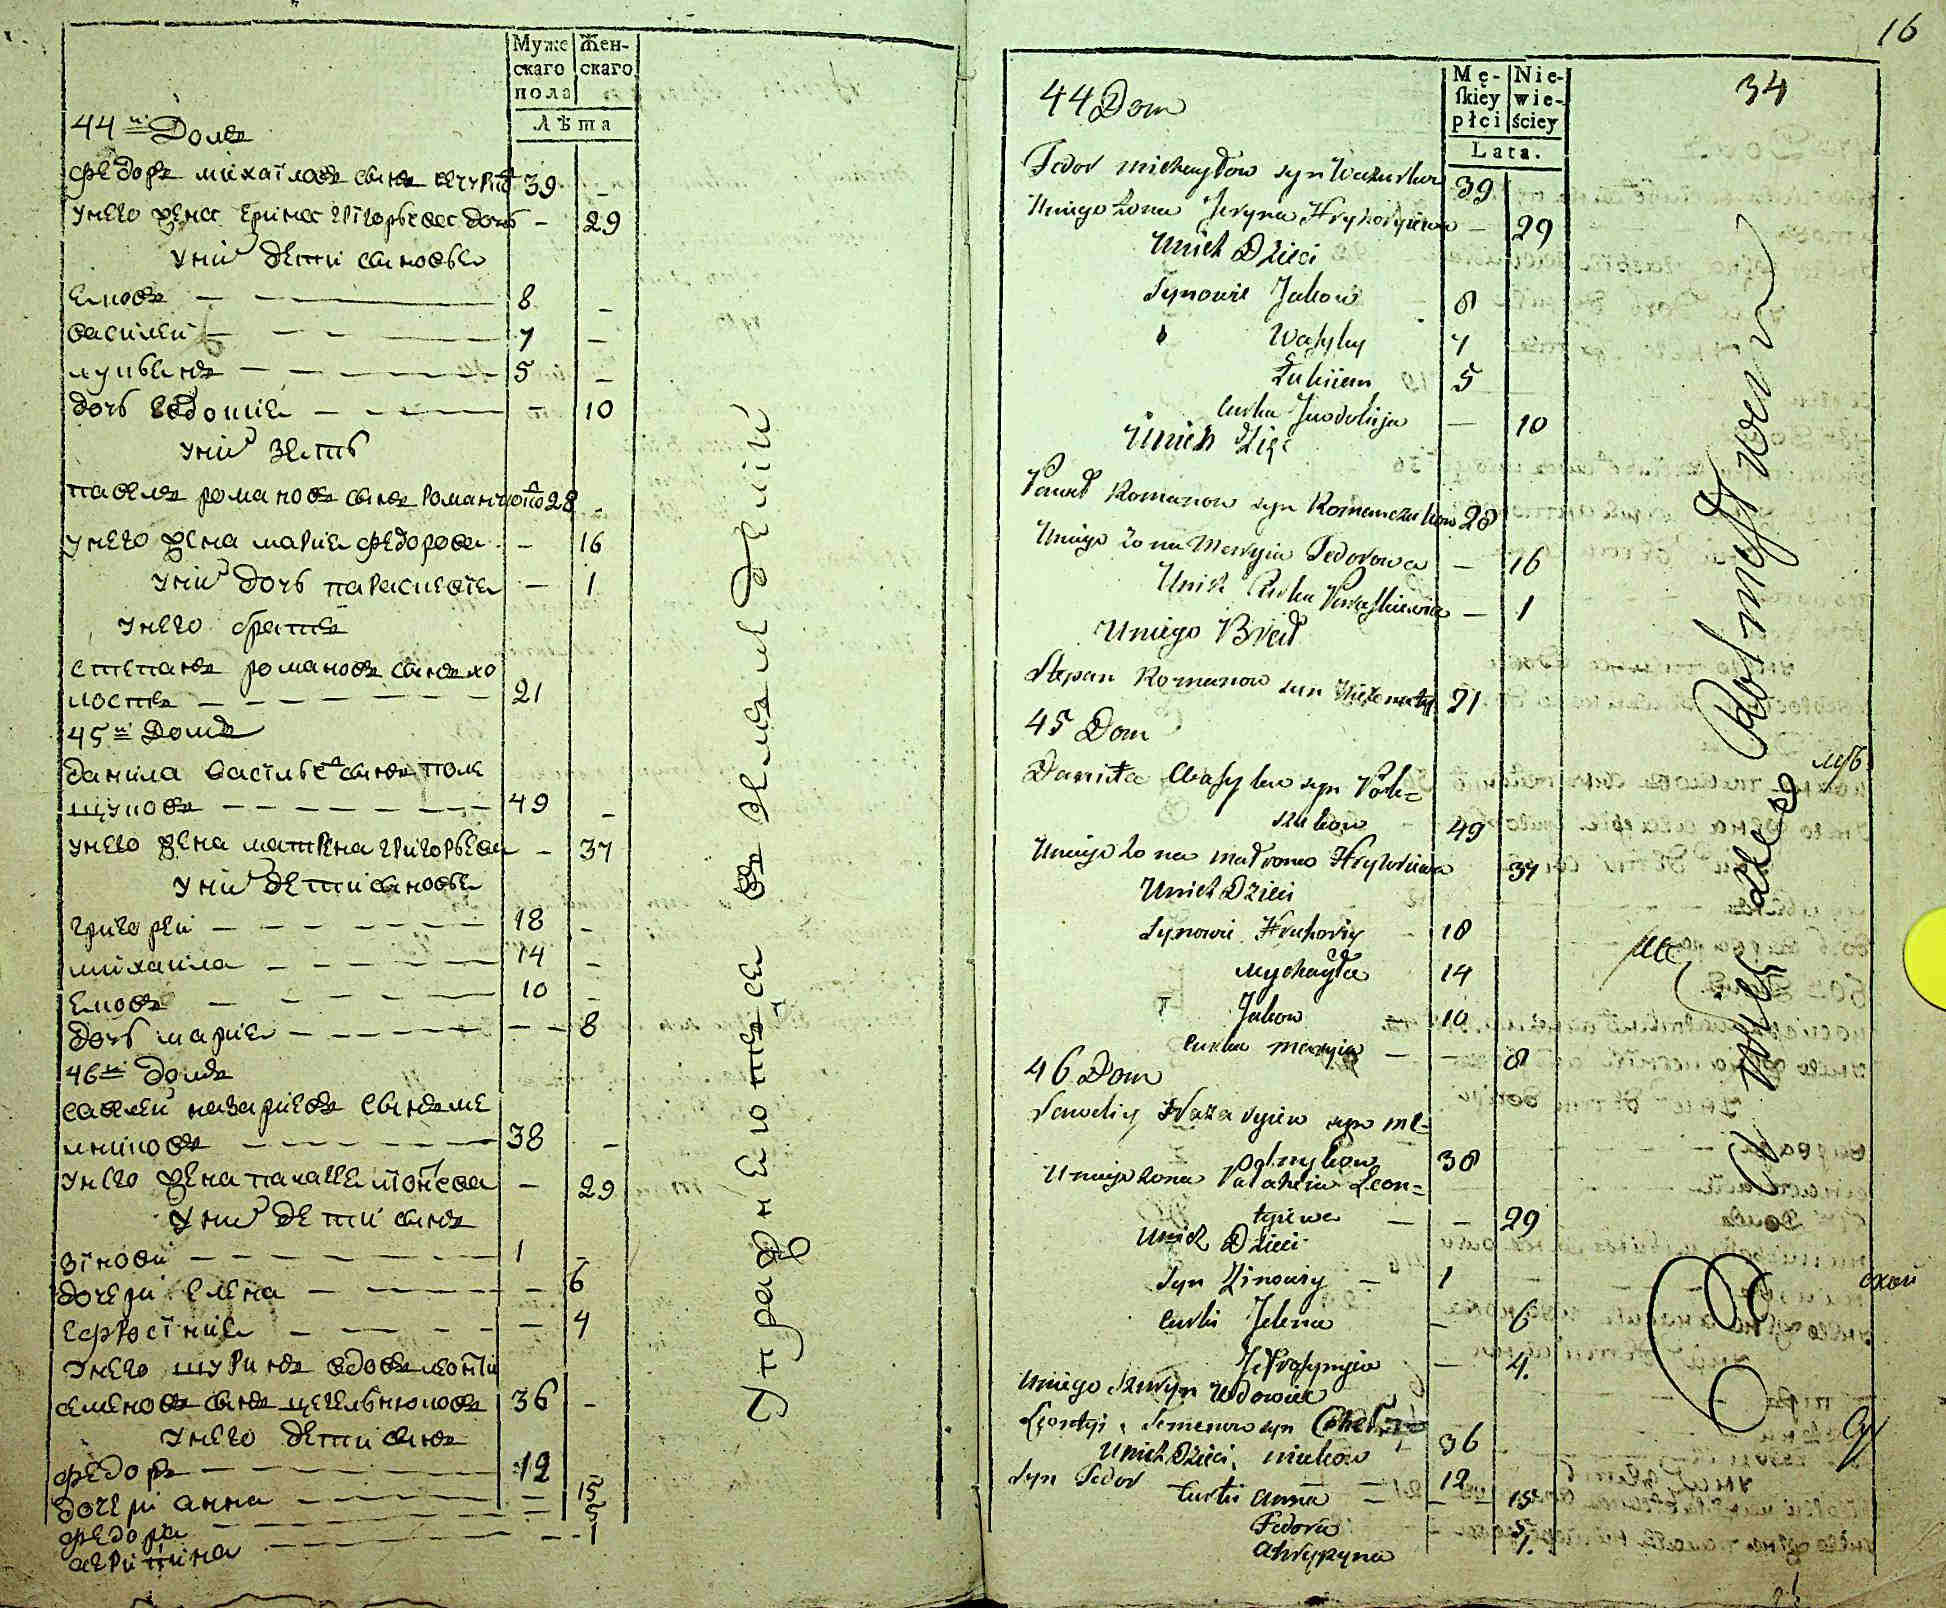 Муже
скаго
пола
Жен-
скаго
Лѣта
44й Домъ
Федоръ Михайловъ сынъ 39 -
у него жена Ерина Григорьева дочь - 29
у них дети сыновья
Яковъ 8 -
Василей 7 -
Лукьянъ 5 -
дочь Евдокия - 10
у них зять
Павелъ Романовъ сынъ 28 -
у него жена Мария Федорова - 16
у них дочь Параскевия - 1
у него братъ
Степанъ Романовъ сынъ хо
лостъ 21
45й Домъ
Данила Васильевъ сынъ Поле
щуковъ 49 -
у него жена Матрена Григорьева - 37
у них дети сыновья
Григорей 18 -
Михаила 14 -
Яковъ 10 -
дочь Мария - - 8
46й Домъ
Савелей Назариевъ сынъ Ме
лниковъ 38 -
у него жена Палагея - 29
у них дети сынъ
Зиновий 1 -
дочери Елена - 6
Ефросиния - 4
у него шуринъ вдовъ Леонтий
Семеновъ сынъ Цегельнюковъ 36 -
у него дети сынъ
Федоръ 12
дочери Анна - 15
Федора - 5
Агрипина - 1
Упражняются въ земледелии
16
34
Mę-
skiey
płci
Nie-
wie-
ściey
Lata.
44 Dom
Fedor Michayłow syn 39
Uniego żona Jeryna Hryhoryiewa - 29
Unich Dzieci
Synowie Jakow 8
Wasyley 7
Łukiian 5
Curka Jwdokija - 10
Unich Zięć
Paweł Romanow syn Romanczukow 28
Uniego żona Maryia Fedorowa - 16
Unich Curka Paraskiewia - 1
Uniego Brat
Stepan Romanow syn 21
45 Dom
Daniła Wasylew syn Pole=
szukow 49
Uniego żona Matrona Hryhoriewa 37
Unich Dzieci
Synowie Hryhoriy 18
Mychayła 14
Jakow 10
Curka Maryia - - 8
46 Dom
Saweliy Nazaryiew syn Me=
lnykow 38
Uniego żona Palahia Leon=
tyiewa - - 29
Unich Dzieci
Syn Zinowiy - 1
Curki Jelena - 6
Jefrosynyia - 4.
Uniego Szuryn Wdowiec
Leontyi Semenow syn Cehel=
niukow 36
Unich Dzieci
Syn Fedor 12
Curki Anna - - 15
Fedora 5
Ahrypyna 1.